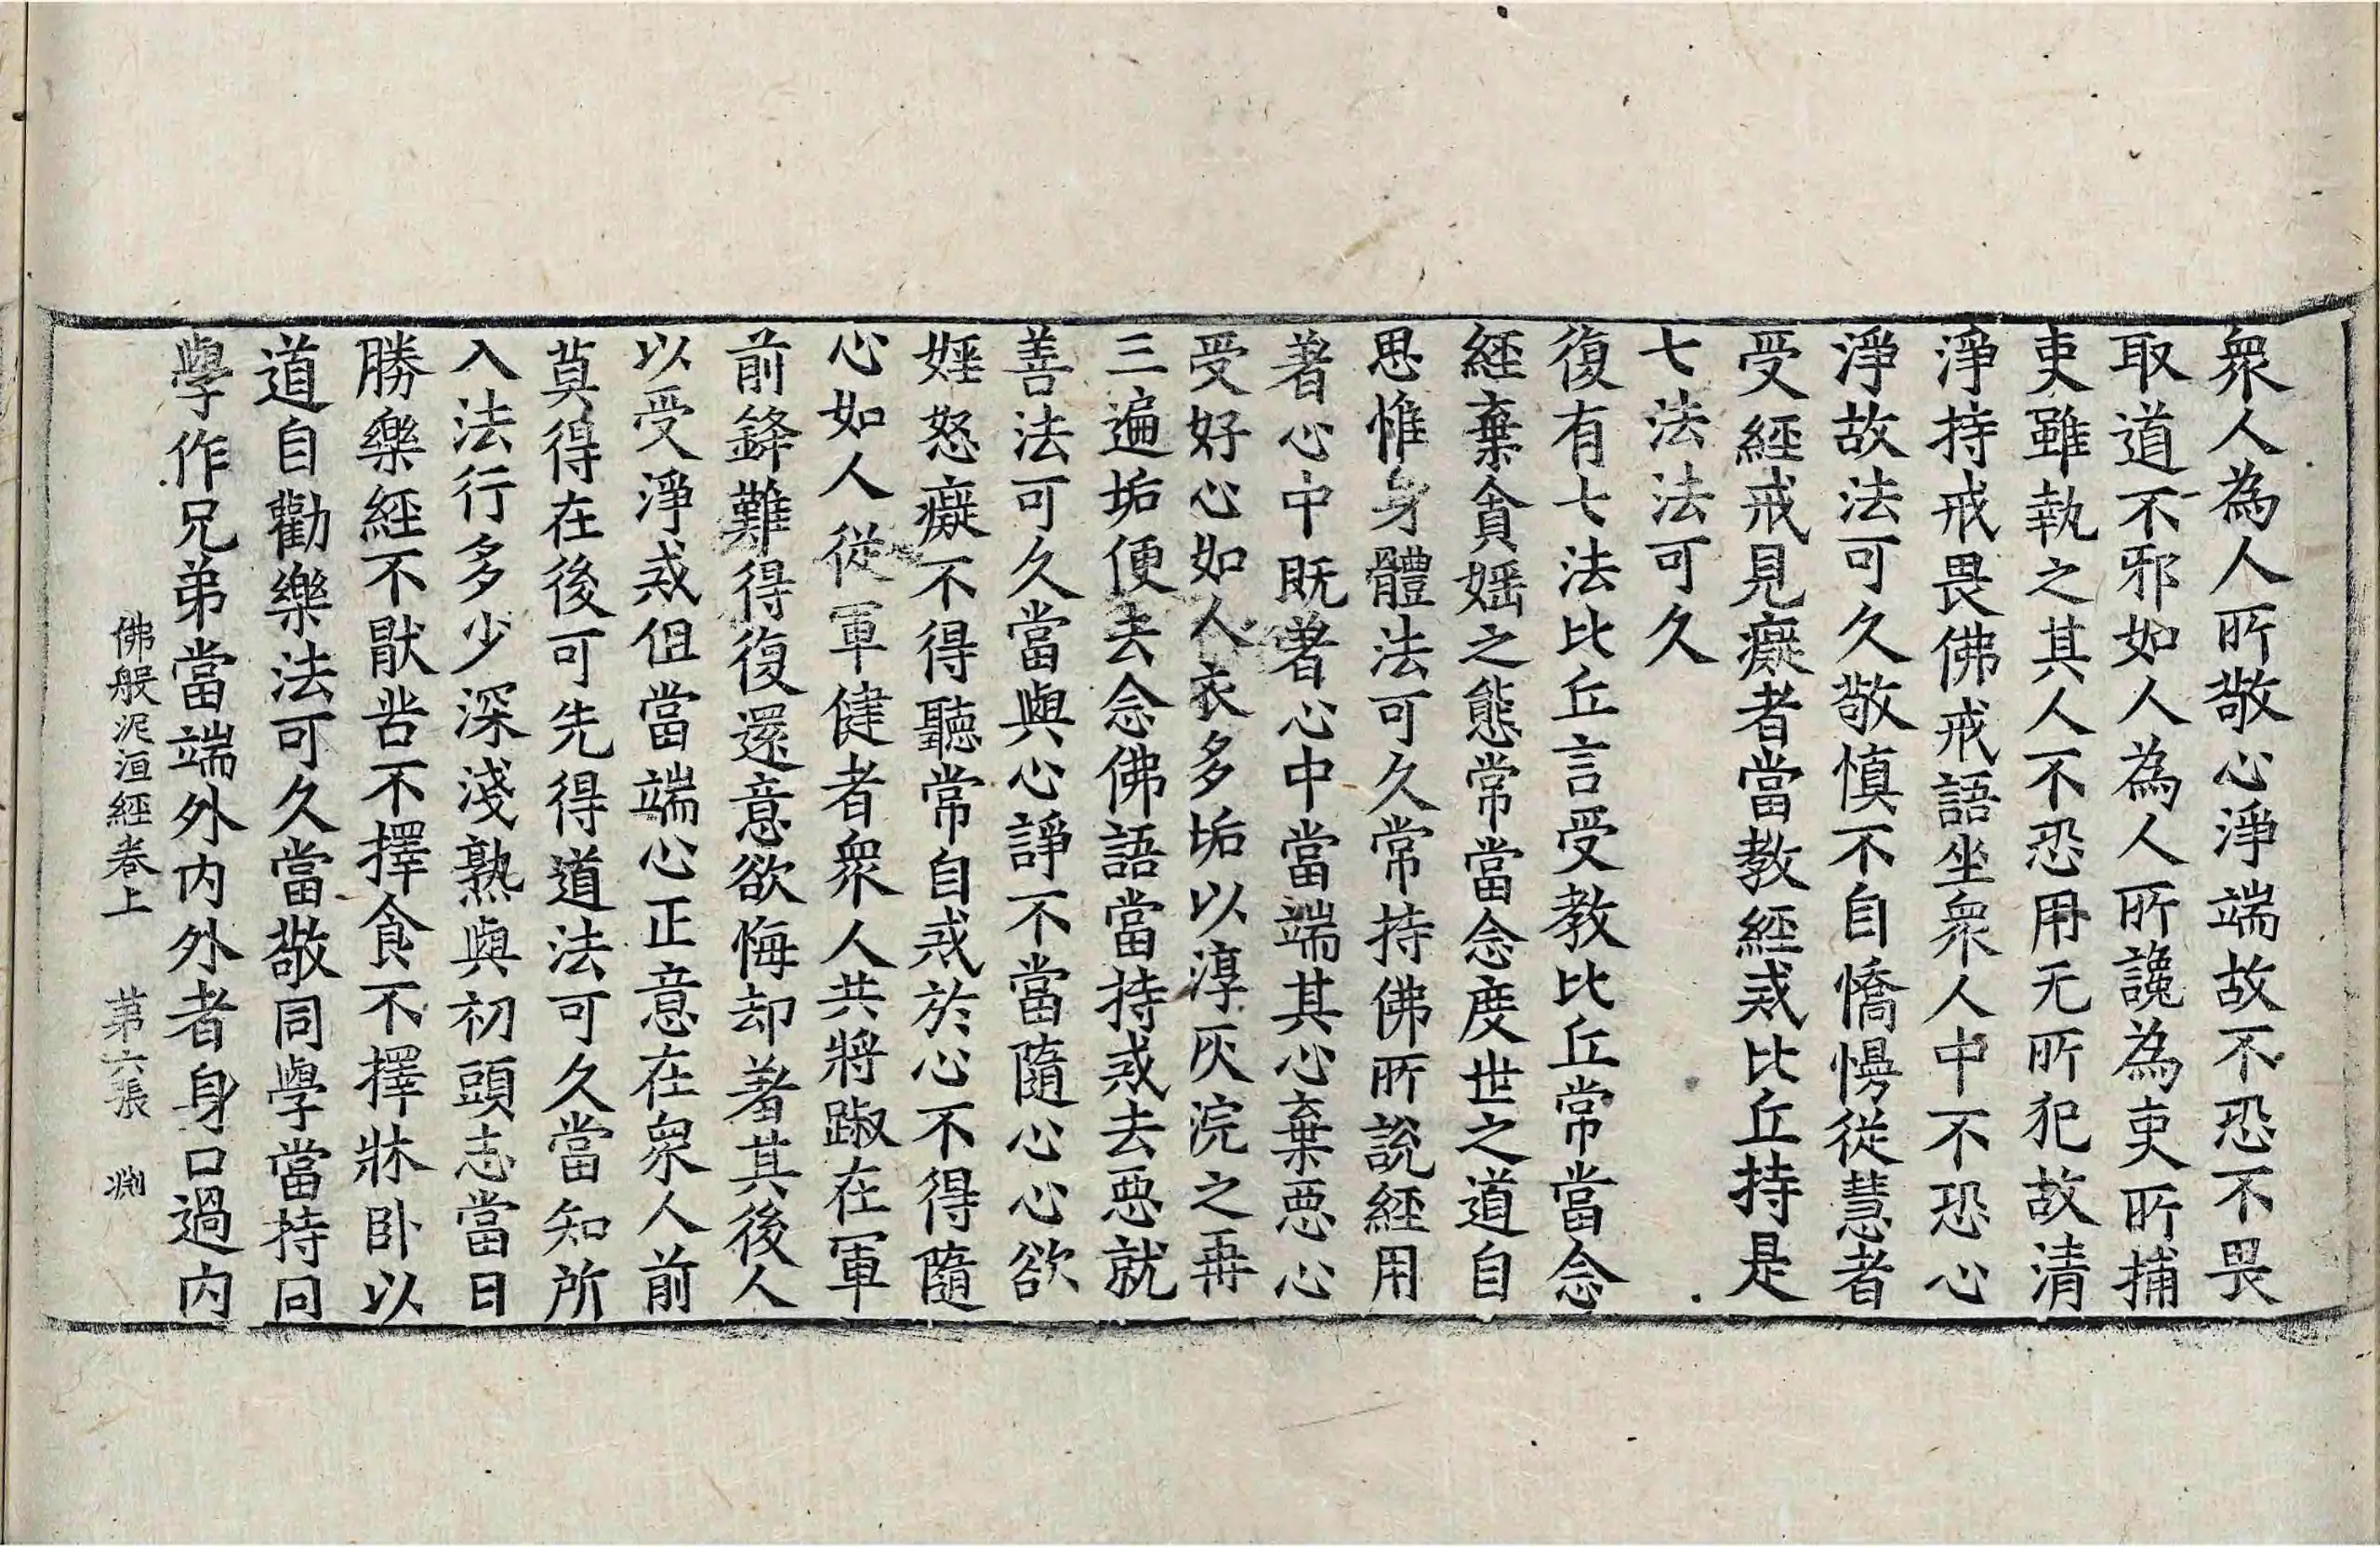 衆人為人所敬心淨端故不恐不畏
取道不邪如人為人所讒為吏所捕
吏雖執之其人不恐用无所犯故清
淨持戒畏佛戒語坐衆人中不恐心
淨故法可久敬慎不自憍慢從慧者
受經戒見癡者當教經戒比丘持是
七法法可久
復有七法比丘言受教比丘常當念
經棄貪婬之態常當念度世之道自
思惟身體法可久常持佛所說經用
著心中既著心中當端其心棄惡心
受好心如人衣多垢以淳灰浣之再
三遍垢便去念佛語當持戒去惡就
善法可久當與心諍不當隨心心欲
婬怒癡不得聽常自戒於心不得隨
心如人從軍健者衆人共將踧在軍
前鋒難得復還意欲悔却著其後人
以受淨戒但當端心正意在衆人前
莫得在後可先得道法可久當知所
入法行多少深淺熟與初頭志當日
勝樂經不猒苦不擇食不擇牀卧以
道自勸樂法可久當敬同學當持同
學作兄弟當端外內外者身口過內
佛般泥洹經卷上 第六張 淵